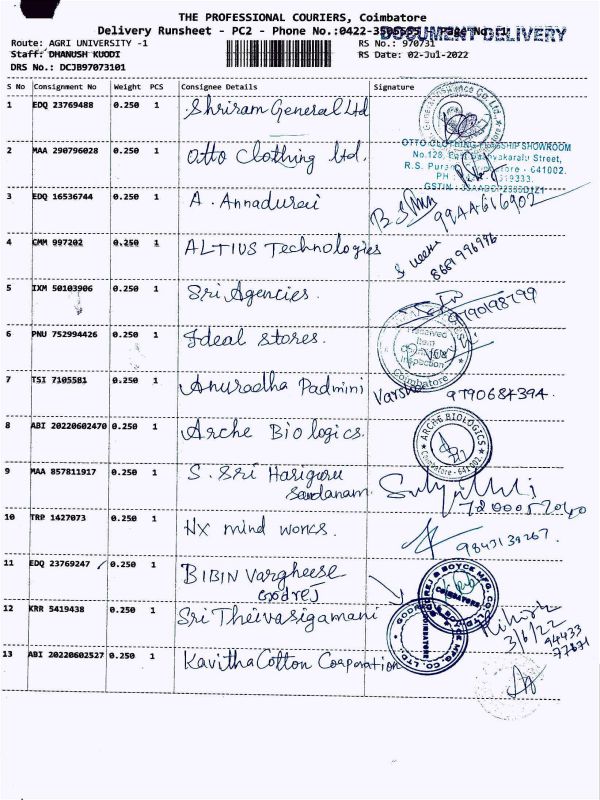 THE PROFESSIONAL COURIERS, Coimbatore
Delivery Runsheet - PC2 - Phone No.:0422-
DOCUMENT DELIVERY
Route: AGRI UNIVERSITY -1
RS No.: 970731
Staff: DHANUSH KUODI
RS Date: 02-Jul-2022
DRS No.: DCJB97073101
S No Consignment No Weight PCS Consignee Details Signature
1 EDQ 23769488 0.250 1 Shriram General Ltd
2 MAA 290796028 0.250 1 Otto Clothing Ltd.
OTTO CLOTHING FLAGSHIP SHOWROOM
No.128, Street,
R.S. - 641002.
3 EDQ 16536744 0.250 1 A. Annadurai
9944616902
4 CMM 997202 0.250 1 ALTIUS Technologies
5 IXM 50103906 0.250 1 Sri Agencies.
9790198799
6 PNU 752994426 0.250 1 Ideal Stores.
Coimbatore
7 TSI 7105581 0.250 1 Anuradha Padmini
Varsha 9790684394.
8 ABI 20220602470 0.250 1 Arche Biologics.
ARCHE BIOLOGICS
Coimbatore - 641 002
9 MAA 857811917 0.250 1 S. Sri Hariguru
Sandanam.
10 TRP 1427073 0.250 1 Hx mind works.
11 EDQ 23769247 0.250 1 BIBIN Vargheese
Godrej
GODREJ & BOYCE MFG. CO. LTD.
COIMBATORE
12 KRR 5419438 0.250 1 Sri Theivasigamani
3/6/22
94433
77671
13 ABI 20220602527 0.250 1 Kavitha Cotton Corporation